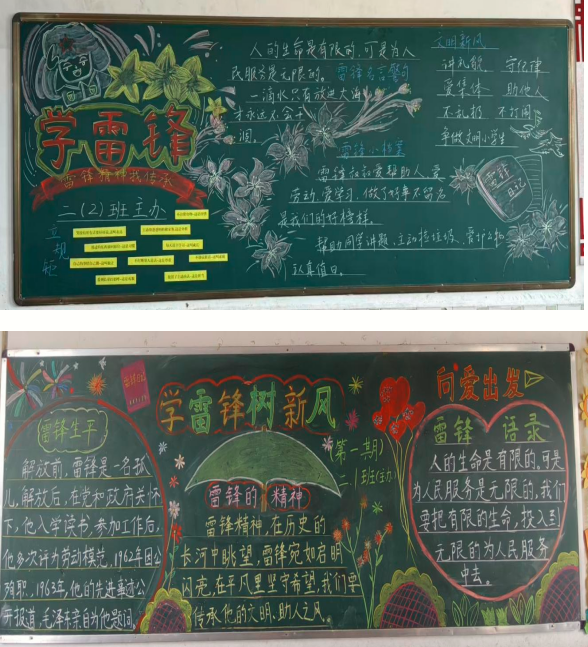 人的生命是有限的,可是为人
民服务是无限的。 雷锋名言警句
一滴水只有放进大海
才永远不会干
涸。
文明新风
讲礼貌 守纪律
爱集体 助他人
不乱扔
争做文明小学生
学雷锋
雷锋精神我传承
二(2)班主办
立规矩
雷锋叔叔爱帮助人,爱
劳动,爱学习,做了好事不留名
是我们的好榜样。
帮助同学讲题,主动捡垃圾,
认真值日。
雷锋
日记
学雷锋树新风
向爱出发
雷锋生平
解放前,雷锋是一名孤
儿,解放后,在党和政府关怀
下,他入学读书,参加工作后,
他多次评为劳动模范,1962年因公
殉职,1963年,他的先进事迹公
开报道,毛泽东亲自为他题词。
第一期
二.1班(主办
雷锋的精神
雷锋精神,在历史的
长河中眺望,雷锋宛如启明
闪亮,在平凡里坚守希望,我们要
传承他的文明、助人之风。
雷锋 语录
人的生命是有限的,可是
为人民服务是无限的,我们
要把有限的生命,投入到
无限的为人民服务
中去。